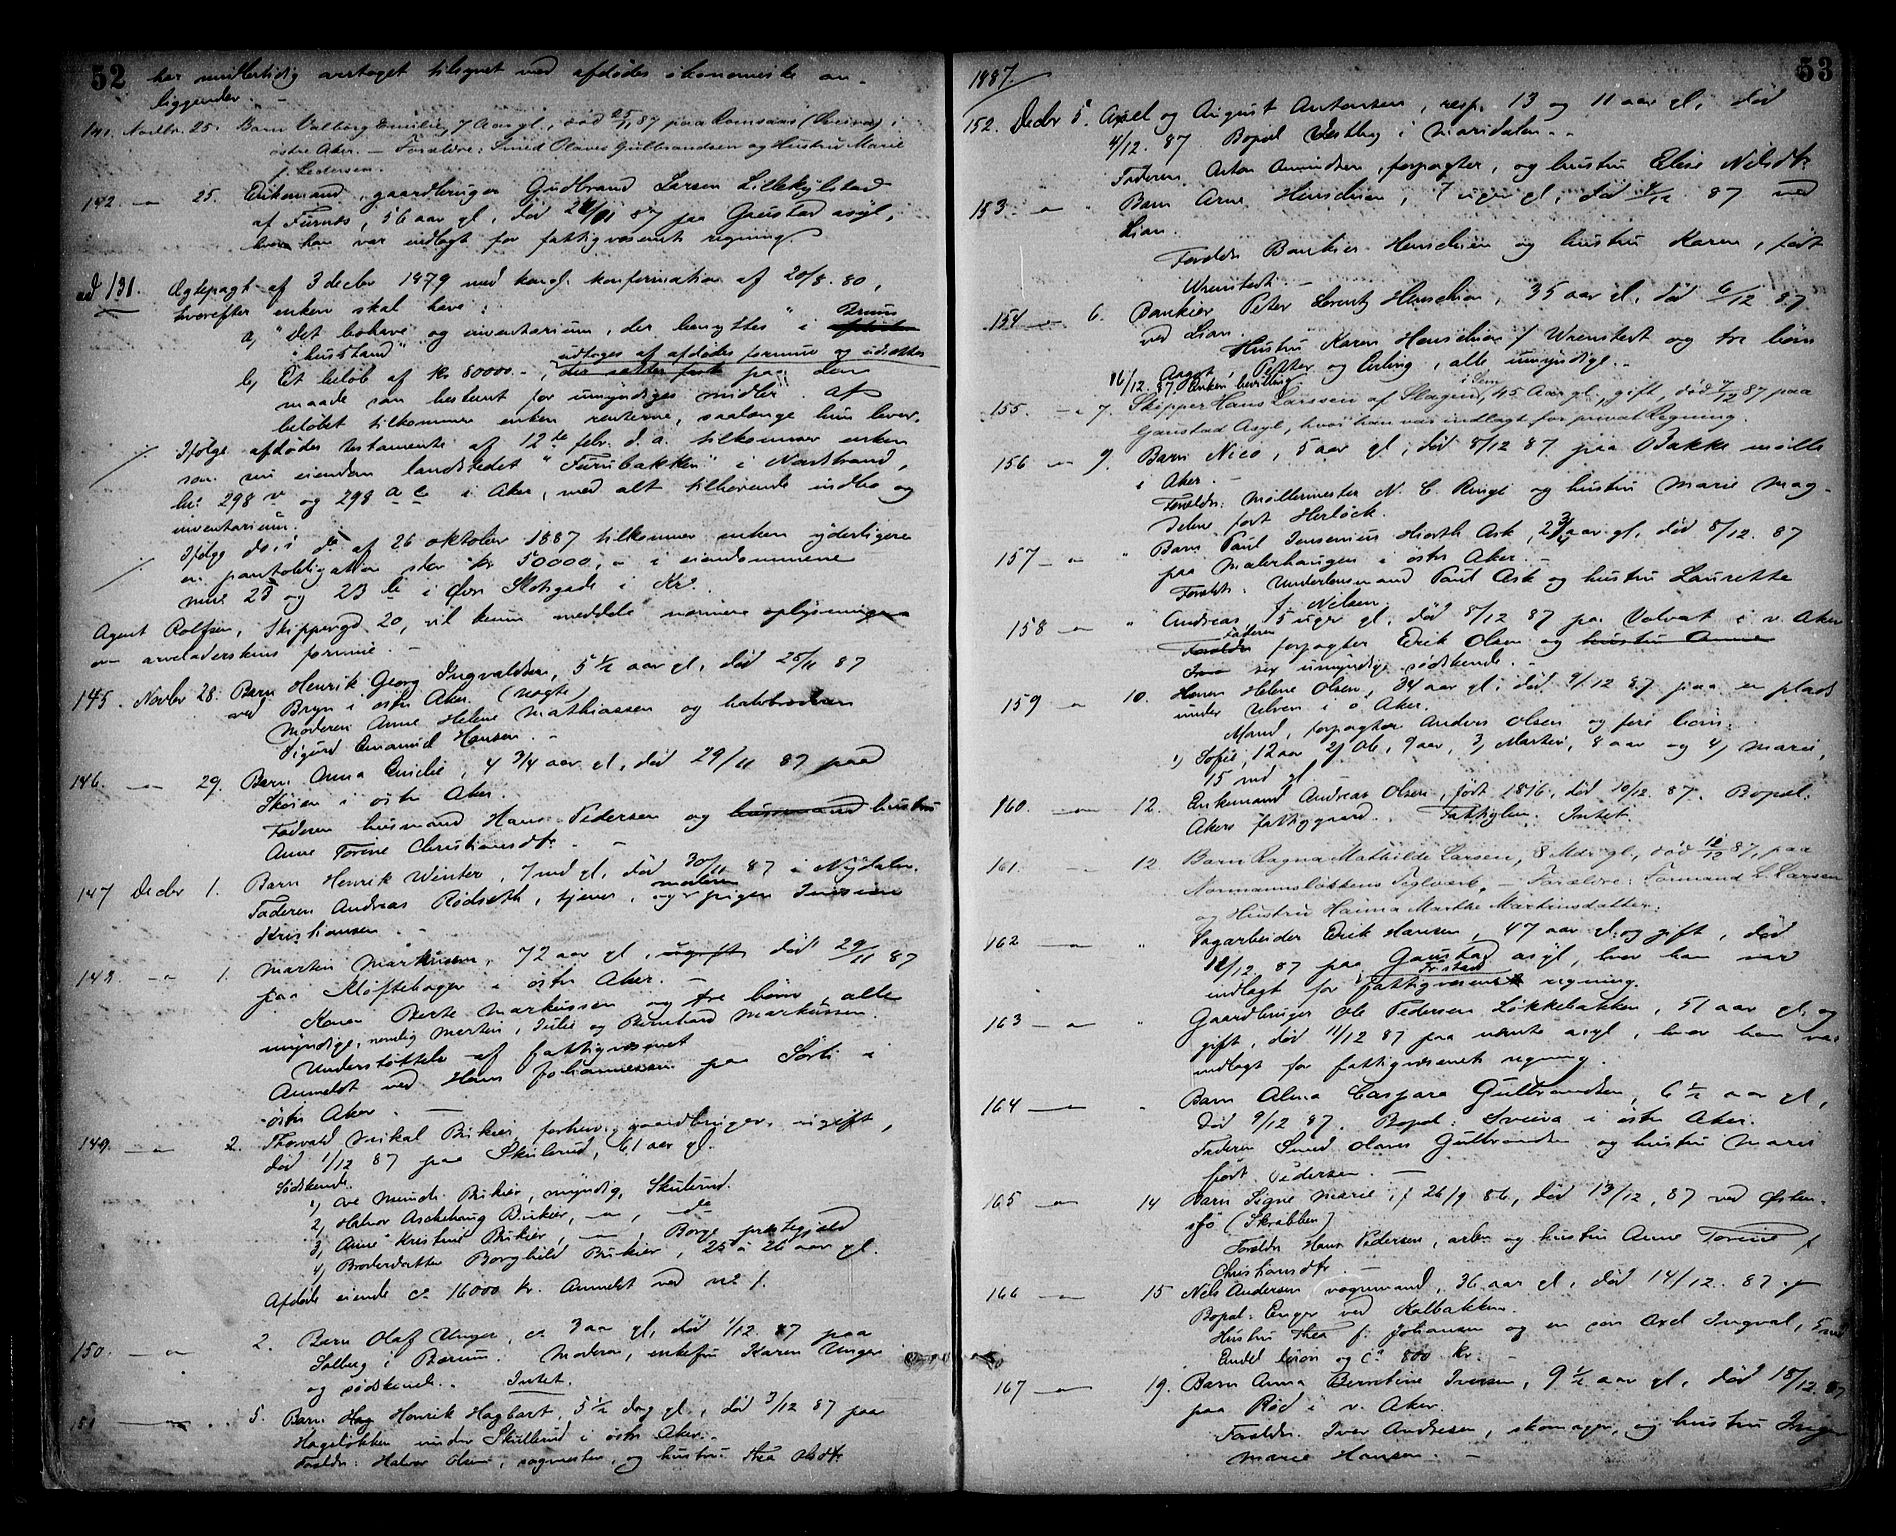 52
har midlertidig overtaget tilsynet med afdødes økonomiske an-
liggender. -
141. Novbr. 25. Barn Valborg Emilie, 7 Aar gl., død 25/11 87 paa Romsaas (Sveiva) i
østre Aker. - Forældre: Smed Olaves Gulbrandsen og Hustru Marie
f. Pedersen.
142. - " 25. Enkemand, gaardbruger Gudbrand Larsen Lillekylstad
af Furnes, 56 aar gl, død 24/11 87 paa Gaustad asyl,
hvor han var indlagt for fattigvæsenets regning.
ad 131. Ægtepagt af 3 decbr 1879 med kongl. konfirmation af 20/8. 80,
hvorefter enken skal have:
a, "Det bohave og inventarium, der benyttes" i Bruuns
"husstand"
udtages af afdødes formue og udsættes
b, Et beløb af kr 80000.-, der sættes fast paa den
maade som bestemt for umyndiges midler". Af
beløbet tilkommer enken renterne, saalænge hun lever.
Ifølge afdødes testamente af 12te febr. d. a. tilkommer enken
som sin eiendom landstedet "Furubakken" i Nordstrand,
br. 298 v og 298 a c i Aker, med alt tilhørende indbo og
inventarium.
Ifølge do, i do af 26 oktober 1887 tilkommer enken yderligere
en pantobligation stor kr 50000,- i eiendommene
nrne 23 og 23 b i Øvre Slotsgade i Kr.a
Agent Rolfsen, Skippergd 20, vil kunne meddele nærmere oplysninger
om arveladerskens formue. -
145. Novbr 28. Barn Henrik Georg Ingvaldsen, 5 1/2 aar gl, død 28/11 87
ved Bryn i østre Aker. (uægte)
Moderen Anne Helene Mathiassen og halvbroderen
Sigurd Emanuel Hansen. -
146. - " 29. Barn Anna Emilie, 4 3/4 aar gl, død 29/11 87 paa
Skøien i østre Aker.
Faderen husmand Hans Pedersen og husmand hustru
Anne Torine Christiansdtr. -
147 Decbr 1. Barn Henrik Winter, 7 md gl, død 30/11 87 i Nydalen.
Faderen Andreas Rødseth, tjener, og moderen pigen
Kristiansen. -
148. - " 1. Martin Markussen, 72 aar gl, ugift, død 29/11 87
paa Kløftehagen i østre Aker. -
Konen Berte Markussen og tre børn, alle
myndige, nemlig Martin, Julie og Bernhard Markussen.
Understøttelse af fattigvæsenet
Anmeldt ved Hans Johannessen paa Sørli i
østre Aker. -
149. - " 2. Thorvald Mikal Birkeir forhenv. gaardbruger, ugift,
død 1/12 87 paa Skulerud, 61 aar gl.
Sødskende.
1, Ove Munch Birkeir, myndig, Skulerud.
2, Halvor Aschehoug Birkeir, - " -, do
3, Anne Kristine Birkeir, - " - Borge prestegjeld
4, Broderdatter Borghild Birkeir, 25 à 26 aar gl.
Afdøde eiende ca 16000 kr. Anmeldt ved no 1.
150. - " 2. Barn Olaf Unger, ca 3 aar gl, død 1/12 87 paa
Solberg i Bærum. Moderen, enkefru Karen Unger
og sødskende. Intet.
151 - " 5. Barn Hag Henrik Hagbart, 5 1/2 dag gl, død 3/12 87 paa
Hageløkken under Skullerud i østre Aker.
Foreldre: Halvor Olsen, sagmester, og hustru Thea Olsdtr.
53
1887.
152. Decbr 5. Axel og August Antonsen, resp. 13 og 11 aar gl, død
4/12. 87. Bopæl Vestby i Maridalen. -
Faderen Anton Amundsen, forpagter, og hustru Elise Nilsdtr.
153. - " " Barn Arne Henschien, 7 uger gl, død 5/12 87 ved
Lian.
Foreldre Bankier Henschien og hustru Karen, født
Wrenstedt. -
154 - 6. Bankier Peter Lorentz Henschien, 35 aar gl, død 6/12 87
ved Lian.
Hustru Karen Henschien f Wrenstedt og tre børn
Aagot, Petter og Erling, alle umyndige. -
16/12. 87 Enken bevilling
155. - " 7. Skipper Hans Larssen af Slagen i Sem, 45 Aar gl., gift, død 7/12 87 paa
Gaustad Asyl, hvor han var indlagt for privat Regning.
156 - " 9. Barn Nico, 5 aar gl, død 8/12 87 paa Bakke mølle
i Aker. -
Foreldre: Møllermester N. C. Ringe og hustru Marie Mag-
delene født Herlöck.
157 - " " Barn Paul Jensenius Hiorth Ask, 2 3/4 aar gl, død 8/12. 87
paa Malerhaugen i østre Aker. -
Foreldre: Underlensmand Paul Ask og hustru Laurette
f. Nilsen.
158 - " " Andreas, 5 uger gl, død 8/12 87 paa Volvat i v. Aker
Foreldre Faderen forpagter Erik Olsen og hustru Anne
sex umyndige sødskende. -
159 - " 10. Konen Helene Olsen, 34 aar gl, død 9/12 87 paa en plads
under Ulven i ø. Aker.
Mand, forpagter Anders Olsen og fire børn:
1, Sofie, 12 aar 2, Ole, 9 aar, 3, Martin, 8 aar og 4, Marie,
15 md gl.
160. - " 12. Enkemand Andreas Olsen, født 1816, død 10/12. 87. Bopæl:
Akers fattiggaard. Fattiglem. Intet.
161. - " 12 Barn Ragna Mathilde Larsen, 8 Mdr gl., død 12/12 87, paa
Normannsløkkens Teglværk. - Forældre: Formand L. Larsen
og Hustru Hanna Marthe Martinsdatter.
162 - " " Sagarbeider Erik Hansen, 47 aar gl. og gift, død
12/12 87 paa Gaustad asyl, hvor han var
indlagt for Fr.stad fattigvæsens regning.
163 - " " Gaardbruger Ole Pedersen Løkkebakken, 51 aar gl, og
gift, død 11/12 87 paa nævnte asyl, hvor han var
indlagt for fattigvæsenets regning.
164 - " " Barn Alma Caspara Gulbrandsen, 6 1/2 aar gl,
død 9/12 87. Bopæl: Sveiva i østre Aker.
Faderen Smed Olaves Gulbrandsen og hustru Marie
født Pedersen. -
165 - " 14 Barn Signe Marie, f 26/9 86, død 13/12, 87 ved Østen-
sjø (Skrabben)
Foreldre Hans Pedersen, arbm og hustru Anne Torine f
Christiansdtr. -
166 - " 15 Nils Andersen vognmand, 36 aar gl, død 14/12. 87.
Bopæl: Enger ved Kalbakken.
Hustru Thea f. Johansen og en søn Axel Ingval, 5 md
Endel løsøre og ca 800 kr. -
167 - " 19. Barn Anna Berntine Iversen, 9 1/2 aar gl, død 18/12 87
paa Rød i v. Aker.
Foreldre: Iver Andresen, skomager, og hustru Inger
Marie Hansen. -